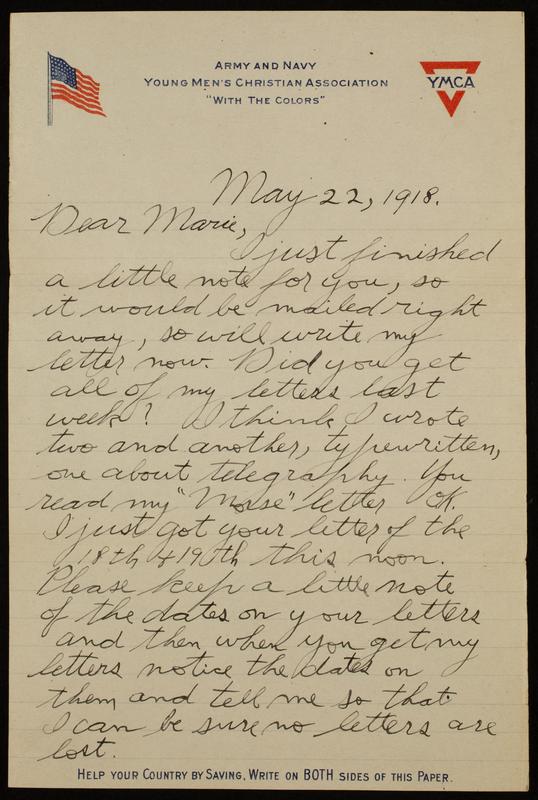 ARMY AND NAVY
YOUNG MEN'S CHRISTIAN ASSOCIATION
"WITH THE COLORS"
YMCA
May 22, 1918.
Dear Marie,
I just finished
a little note for you, so
it would be mailed right
away, so will write my
letter now. Did you get
all of my letters last
week? I think I wrote
two and another, typewritten,
one about telegraphy. You
read my "Morse" letter OK.
I just got your letter of the
18th & 19th this noon.
Please keep a little note
of the dates on your letters
and then when you get my
letters notice the dates on
them and tell me so that
I can be sure no letters are
lost.
HELP YOUR COUNTRY BY SAVING, WRITE ON BOTH SIDES OF THIS PAPER.